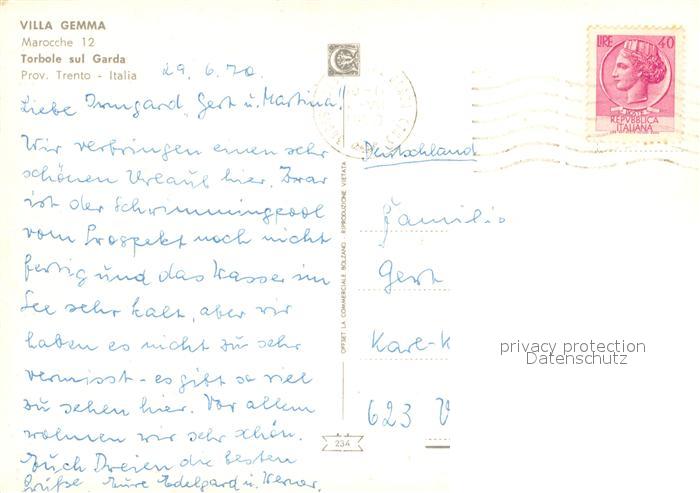 VILLA GEMMA
Marocche 12
Torbole sul Garda
Prov. Trento - Italia
29.6.70.
Liebe Irmgard, Gert u. Martina!!
Wir verbringen einen sehr
schönen Urlaub hier. Zwar
ist der Schwimmingpool
vom Prospekt noch nicht
fertig und das Wasser im
See sehr kalt, aber wir
haben es nicht zu sehr
vermisst - es gibt so viel
zu sehen hier. Vor allem
wohnen wir sehr schön.
Euch Dreien die besten
Grüße Eure Edelgard u. Werner.
OFFSET LA COMMERCIALE BOLZANO. RIPRODUZIONE VIETATA
234
LIRE 40
POSTE
REPVBBLICA
ITALIANA
Deutschland
Familie
Gert
Karl-K
623 V
privacy protection
Datenschutz